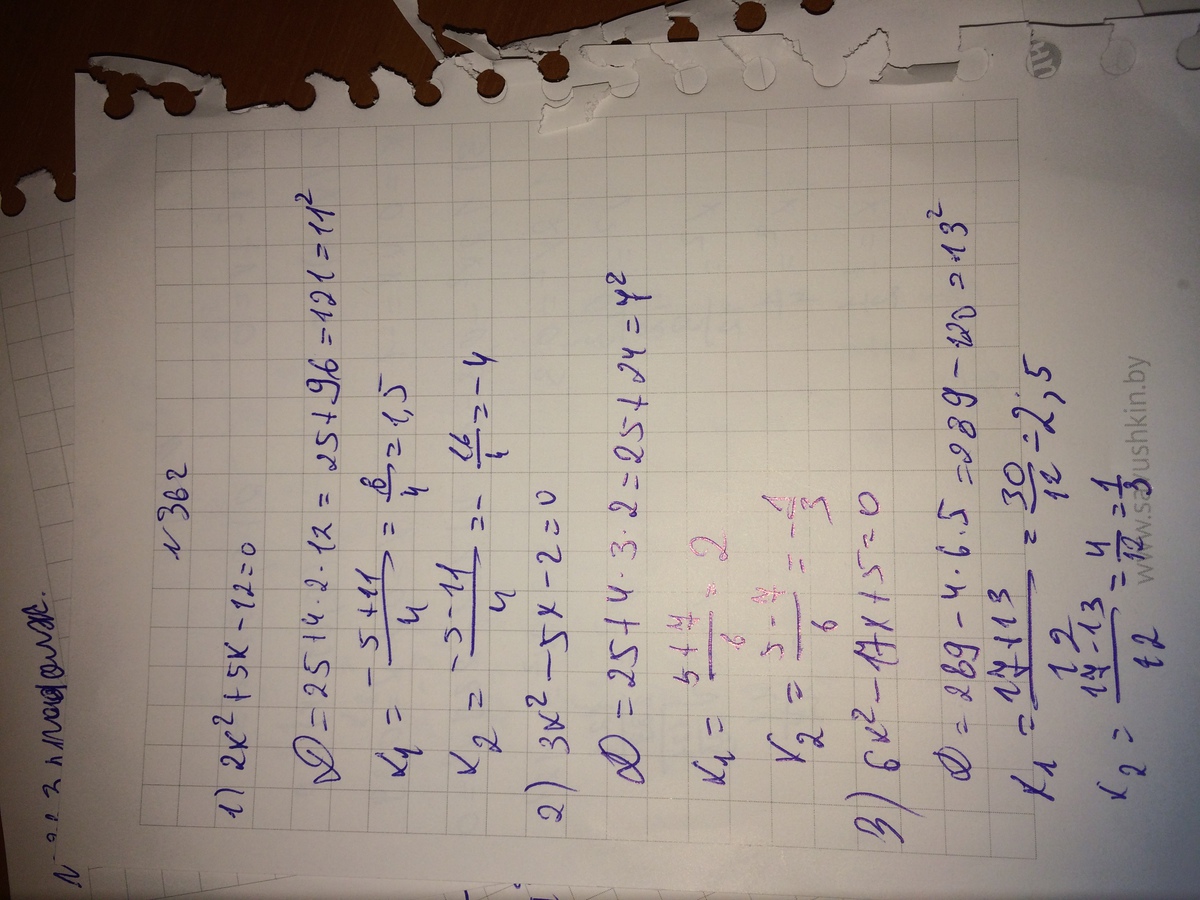 №362
1) 2x² + 5x - 12 = 0
D = 25 + 4 · 2 · 12 = 25 + 96 = 121 = 11²
x₁ = -5 + 11 / 4 = 6/4 = 1,5
x₂ = -5 - 11 / 4 = - 16/4 = -4
2) 3x² - 5x - 2 = 0
D = 25 + 4 · 3 · 2 = 25 + 24 = 7²
x₁ = 5 + 7 / 6 = 2
x₂ = 5 - 7 / 6 = - 1/3
3) 6x² - 17x + 5 = 0
D = 289 - 4 · 6 · 5 = 289 - 120 = 13²
x₁ = 17 + 13 / 12 = 30/12 = 2,5
x₂ = 17 - 13 / 12 = 4/12 = 1/3
www.savushkin.by